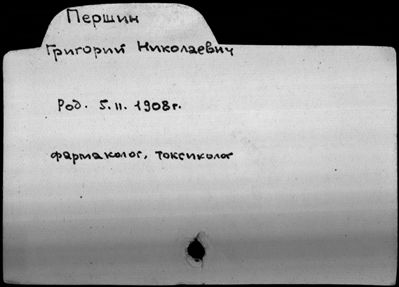 Першин
Григорий Николаевич
Род. 5.II.1908г.
фармаколог, токсиколог